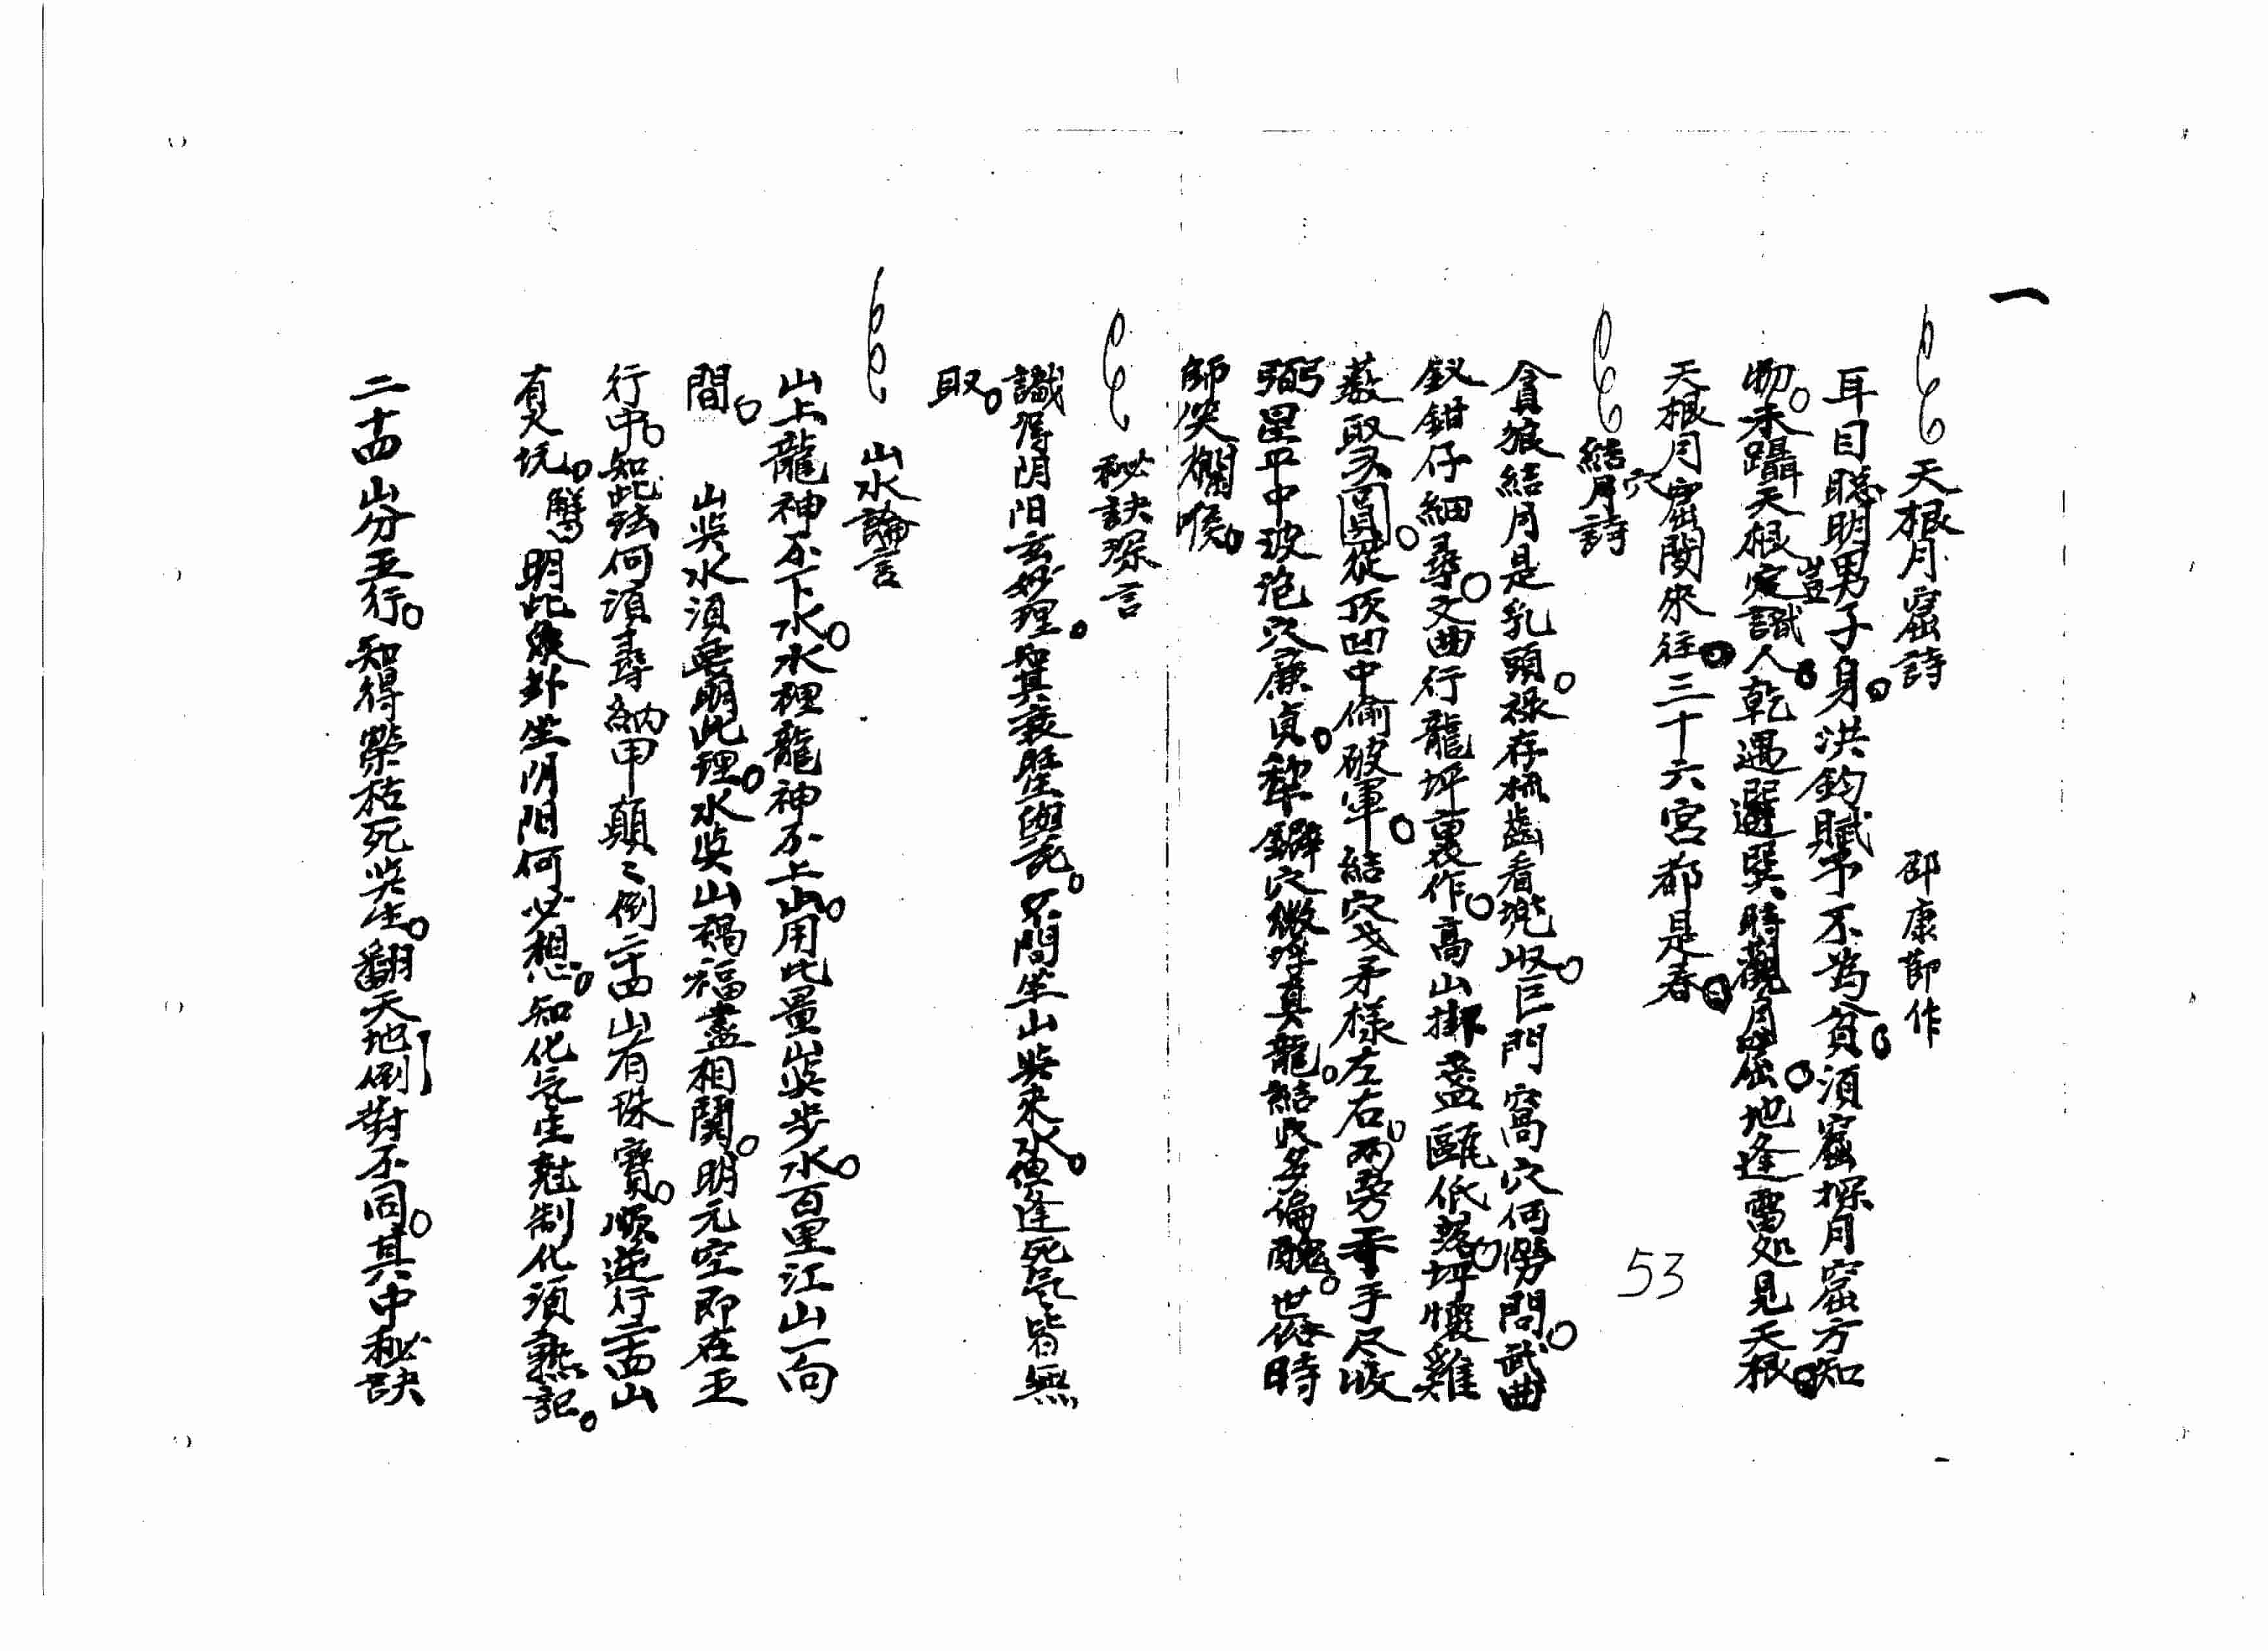 一
天根月窟詩 邵康節作
耳目聰明男子身。洪鈞賦予不為貧。須窟探月窟方知
物。未躡天根豈識人。乾遇巽時觀月窟。地逢雷処見天根。
天根月窟閑來往。三十六宮都是春。
結穴詩
貪狼結月是乳頭。祿存梳齒看兜收。巨門窩穴何勞問。武曲
釵鉗仔細尋。文曲行龍坪裏作。高山掛盞甌低落坪懷雞
藪取又圓。從頂凹中偷破軍。結穴戈矛樣左右。兩旁手尽收
弼星平中波泡穴廉貞。犁鐴穴微坪真龍。結穴多偏醜。世俗時
師笑爛喉。
秘訣琛言
識得阴阳玄妙理。知其衰旺生與死。不問坐山與來水。但逢死气皆無
取。
山水論言
山上龍神不下水。水裡龍神不上山。用此量山與步水。百里江山一向
間。 山與水須要明此理。水與山禍福盡相関。明元空即在五
行中。知此法何須尋納甲顛々倒二十四山有珠寶。順逆行二十四山
有火坑。 明此象卦坐阴阳何必想。知化气生尅制化須熟記。
二十四山分五行。知得榮枯死與生。翻天地倒對不同。其中秘訣
53